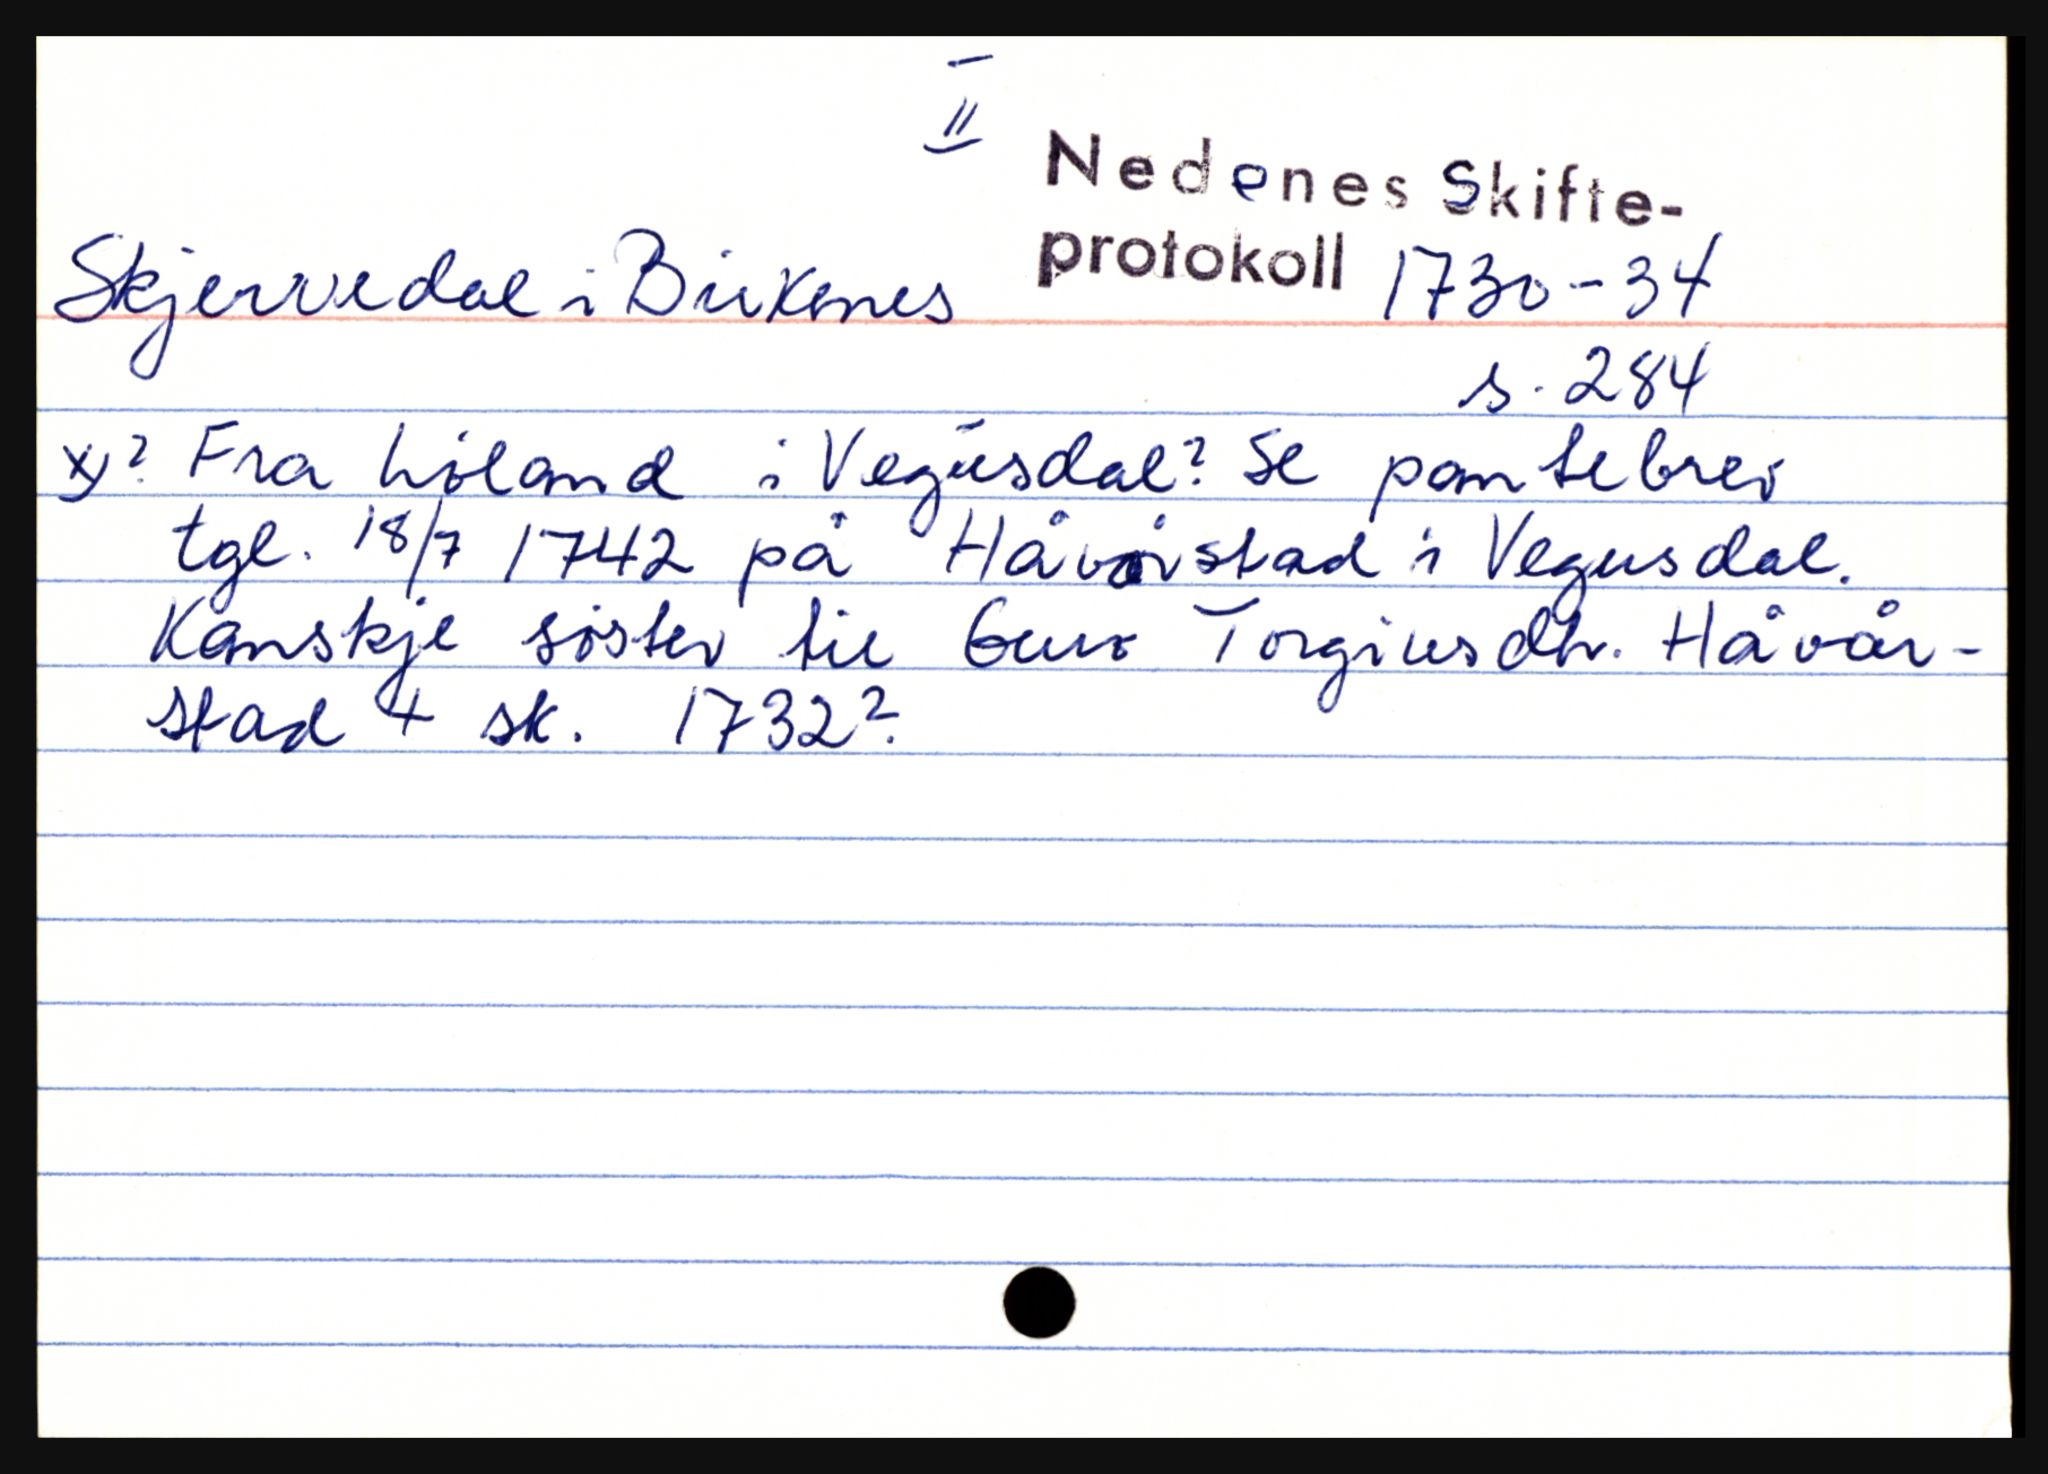 II
Nedenes Skifte-
protokoll 1730-34
Skjervedal i Birkenes
s. 284
x)? Fra Løland i Vegusdal? Se pantebrev
tgl. 18/7 1742 på Håvårstad i Vegusdal.
Kanskje søster til Guro Torgiusdtr. Håvår-
stad + sk. 1732?